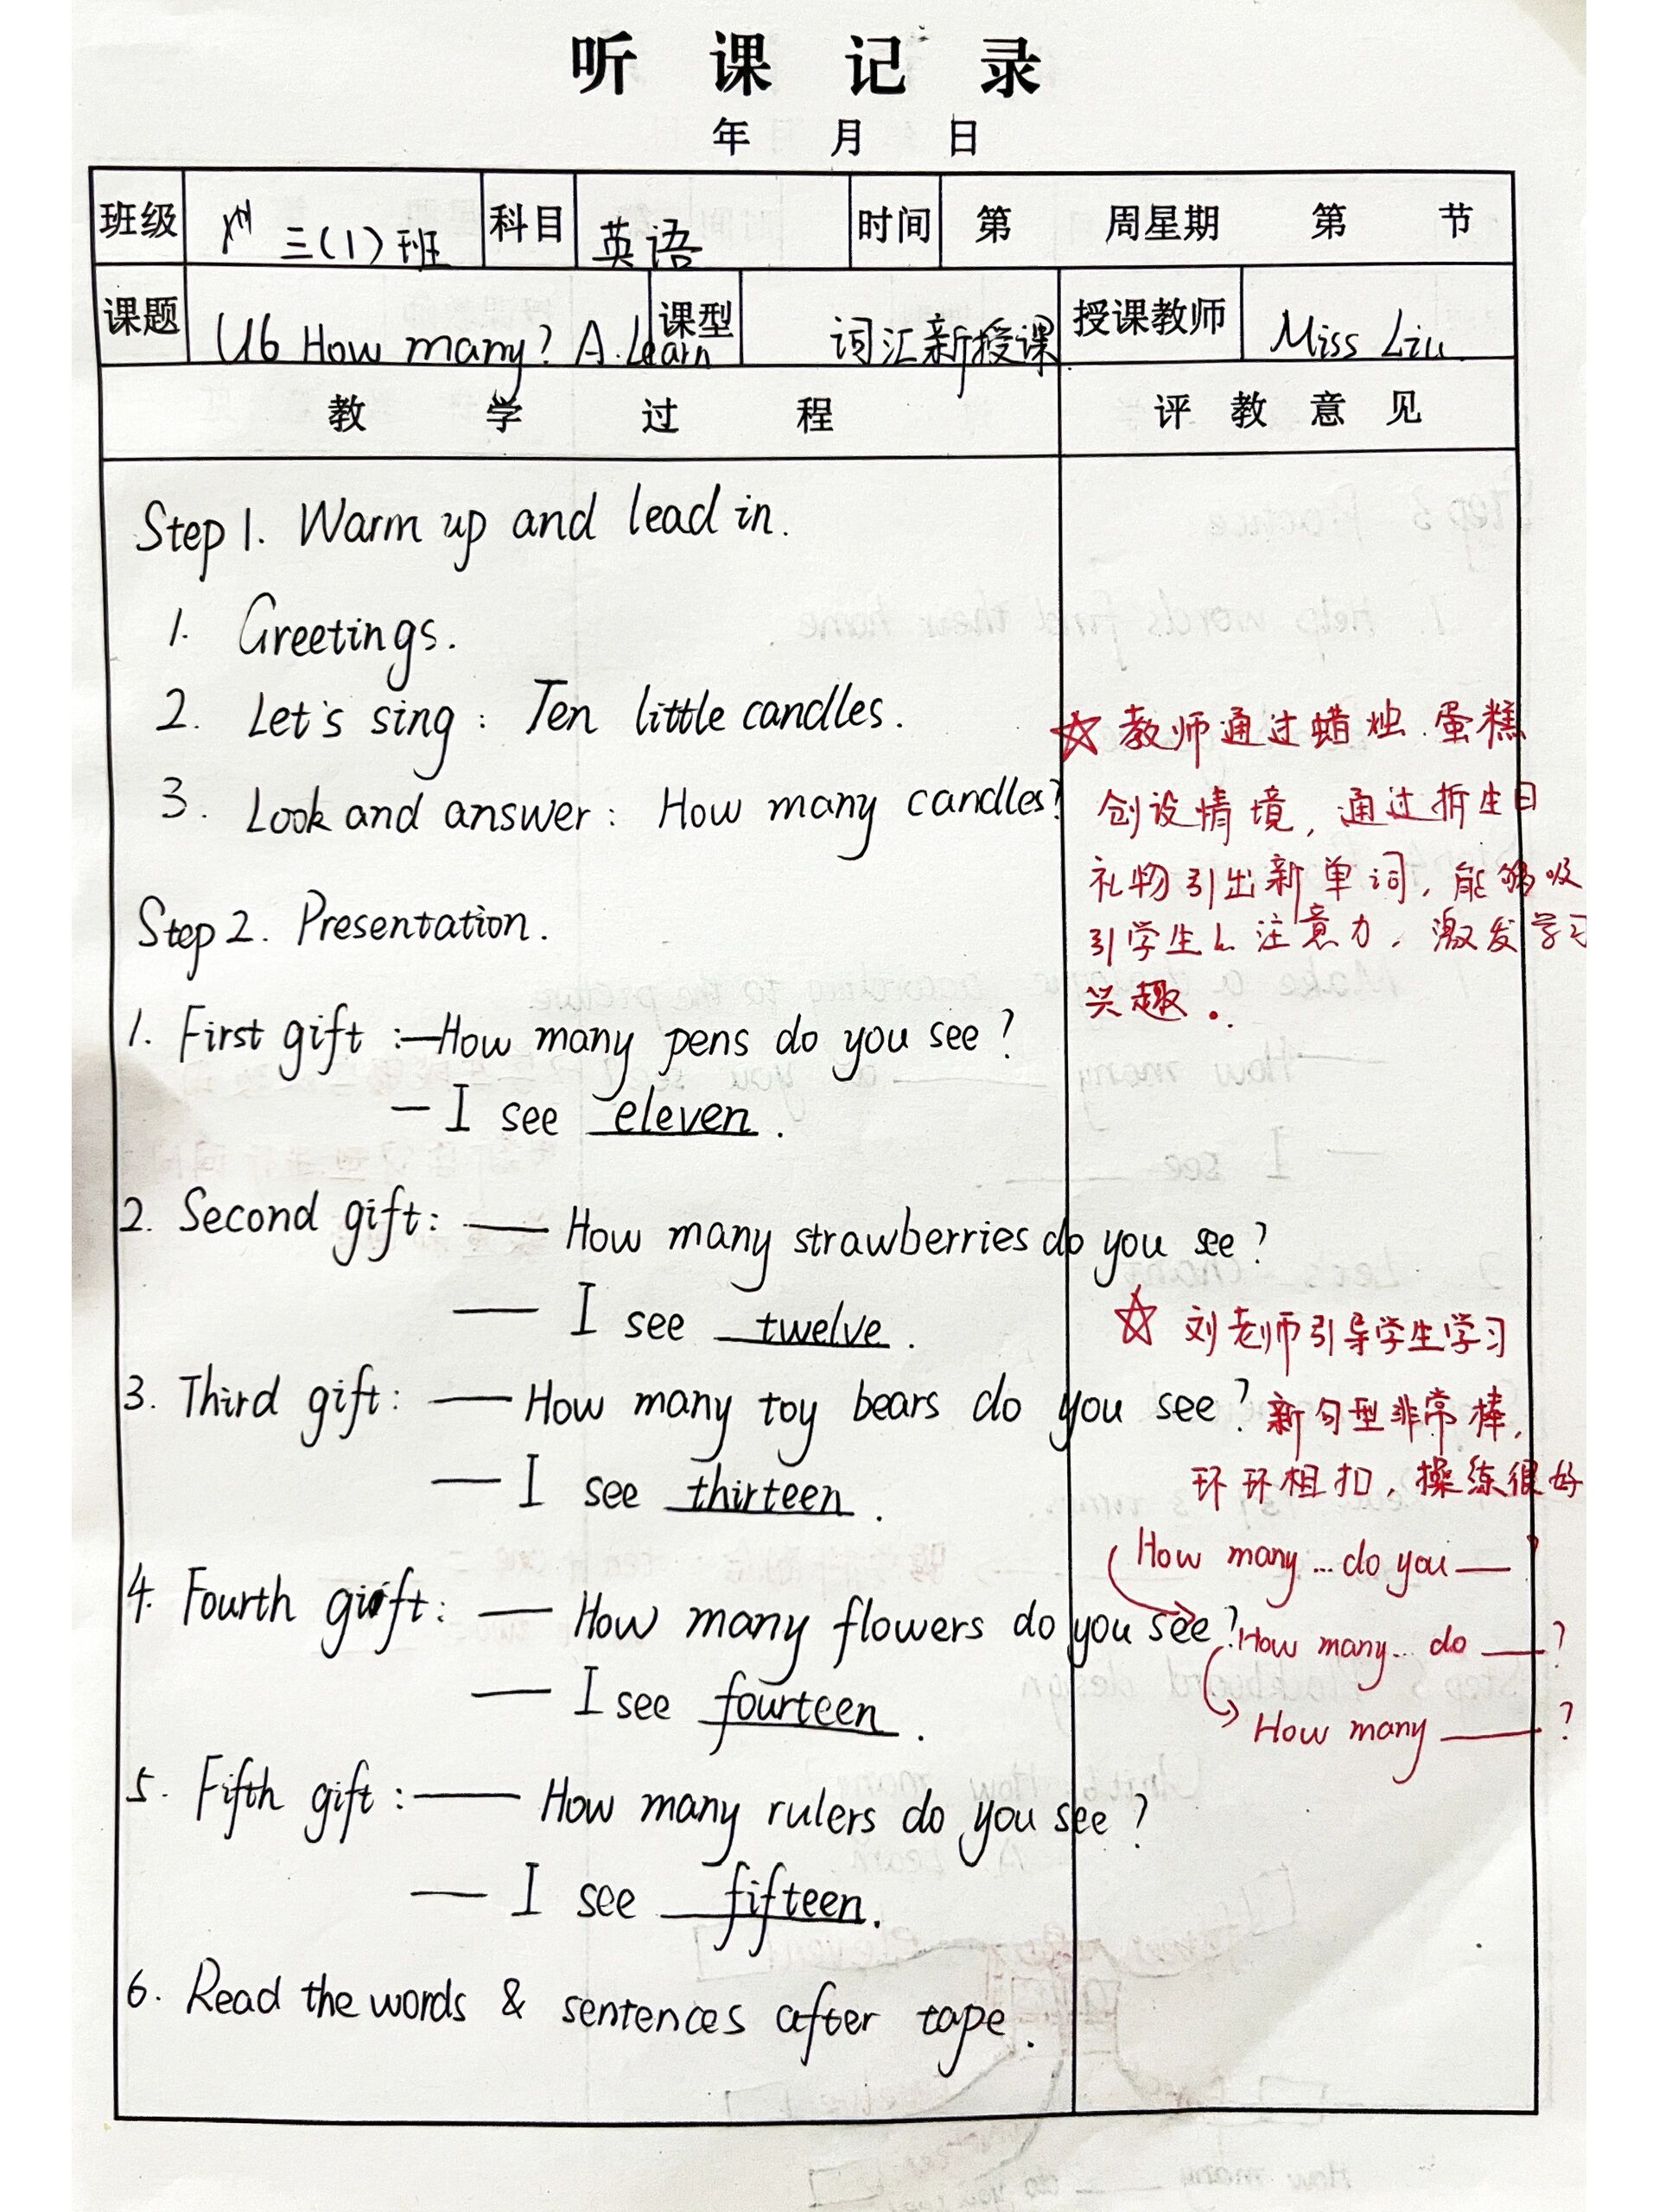 听课记录
年 月 日
班级 三(1)班 科目 英语 时间 第 周星期 第 节
课题 U6 How many? A.Learn 课型 词汇新授课 授课教师 Miss Liu
教学过程 评教意见
Step 1. Warm up and lead in.
1. Greetings.
2. Let's sing: Ten little candles.
3. Look and answer: How many candles?
Step 2. Presentation.
1. First gift: —How many pens do you see?
— I see eleven.
2. Second gift: — How many strawberries do you see?
— I see twelve.
3. Third gift: — How many toy bears do you see?
— I see thirteen.
4. Fourth gift: — How many flowers do you see?
— I see fourteen.
5. Fifth gift: — How many rulers do you see?
— I see fifteen.
6. Read the words & sentences after tape.
☆ 教师通过蜡烛.蛋糕
创设情境,通过拆生日
礼物引出新单词,能够吸
引学生的注意力,激发学习
兴趣.
☆ 刘老师引导学生学习
新句型非常棒,
环环相扣,操练很好
How many...do you —?
How many... do —?
How many —?